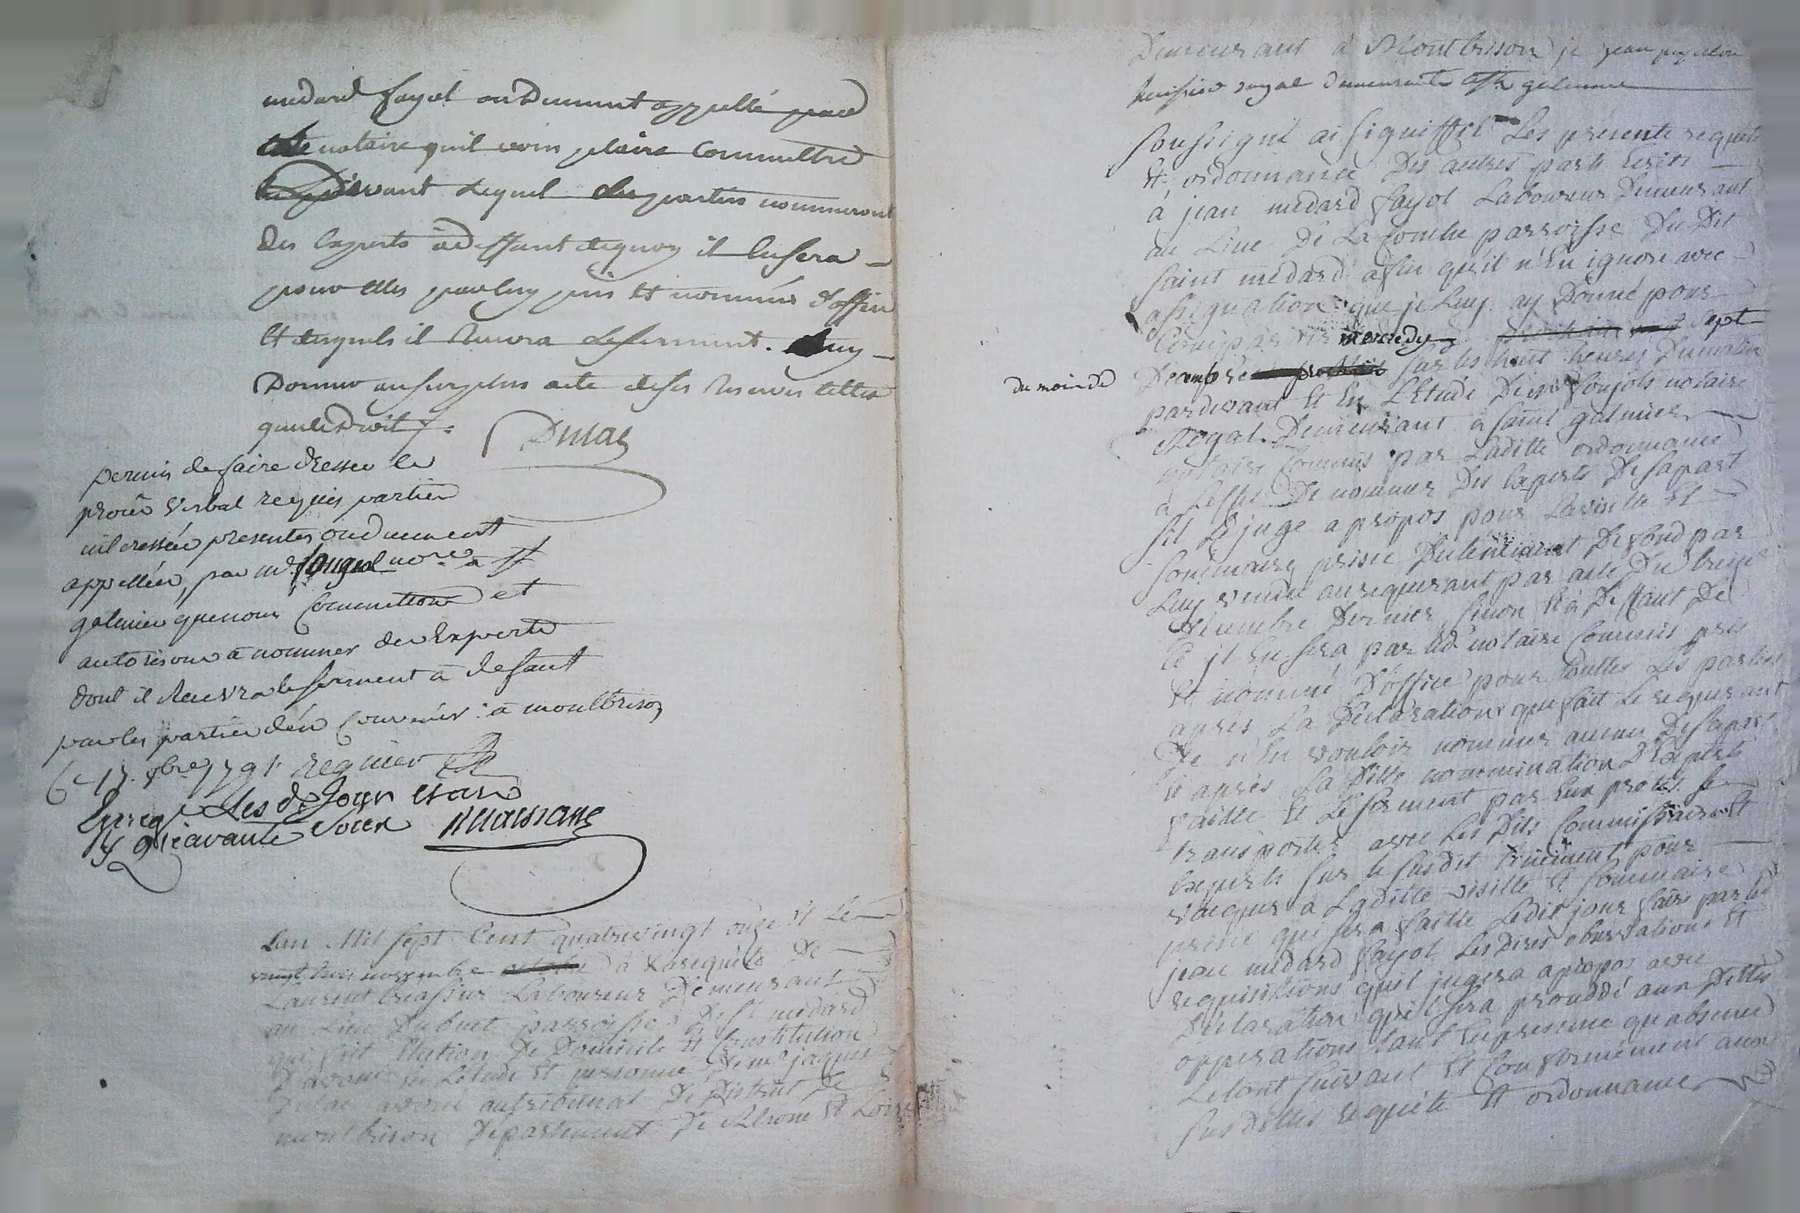 medard fayol ou Dument appellé pard
notaire quil vous plaira Commettre
pardevant lequel les parties nommeront
des Experts à deffaut dequoy il luy sera
pour elles par luy pris et nommés d'office
et desquels il Recevra le serment. luy
Donner au surplus acte de ses Reserves telles
que de Droit
Duclas
permis de faire dresser le
procès verbal requis parties
interessées presentes ou dument
appellées, par me fougerol nore à st
galmier que nous Commettons et
autorisons à nommer des Experts
dont il Recevra le serment à defaut
par les parties d'en Convenir: à montbrison
17. 9bre 1791. regnier
Enregre Les d. Jour et an
Reçu quinze Soux
L'an Mil sept Cent quatre vingt onze Et Le
vingt trois novembre à La requête De
Laurent brassier Laboureur Demeurant
au Lieu Dubuet parroisse De st medard
qui fait Election De Domicile Et Constitution
D'avoué En L'étude Et personne De me jacques
Duclas avoué au tribunal De District De
montbrison Departement De Rhone Et Loire
Demeurant à Montbrison je jean
huissier royal demeurant à st galmier
Soussigné ai signiffié Les présente requête
Et ordonnance Des autres parts Ecrites
à jean medard fayol Laboureur Demeurant
au Lieu De La Combe parroisse Du Dit
Saint medard afin qu'il n'En ignore avec
assignation que je Luy ay Donné pour
Comparoir mercredy sept
du mois de Decembre sur les huit heures Du matin
pardevant Et En L'Etude De me foujols notaire
Royal Demeurant à Saint galmier
notaire Commis par Laditte ordonnance
à L'effet De nommer Des Experts De sa part
S'il Le juge a propos pour La visitte Et
Sommaire prisée Du tenement De fond par
Luy vendu au requerant par acte Du treize
Decembre Dernier, sinon Et à Deffaut De
Ce jl En sera par Led notaire Commis pris
Et nommé D'office pour touttes Les parties
après La Déclaration que fait Le requerant
De n'En vouloir nommer aucun De sa part
Et après La Ditte nomination D'Experts
faitte Et Le serment par Eux prêté, Se
transporter avec Les Dits Commissaire Et
Experts sur Le susdit tenement pour
vacquer à Laditte visitte Et sommaire
prisée qui sera faitte Ledit jour faire par Le
jean medard fayol Les Dires observations Et
requisitions qu'il jugera apropos avec
Déclaration qu'il sera procedé aux Dittes
opperations tant En presence qu'absence
Le tout suivant Et Conformément aux
Susdittes requête Et ordonnance